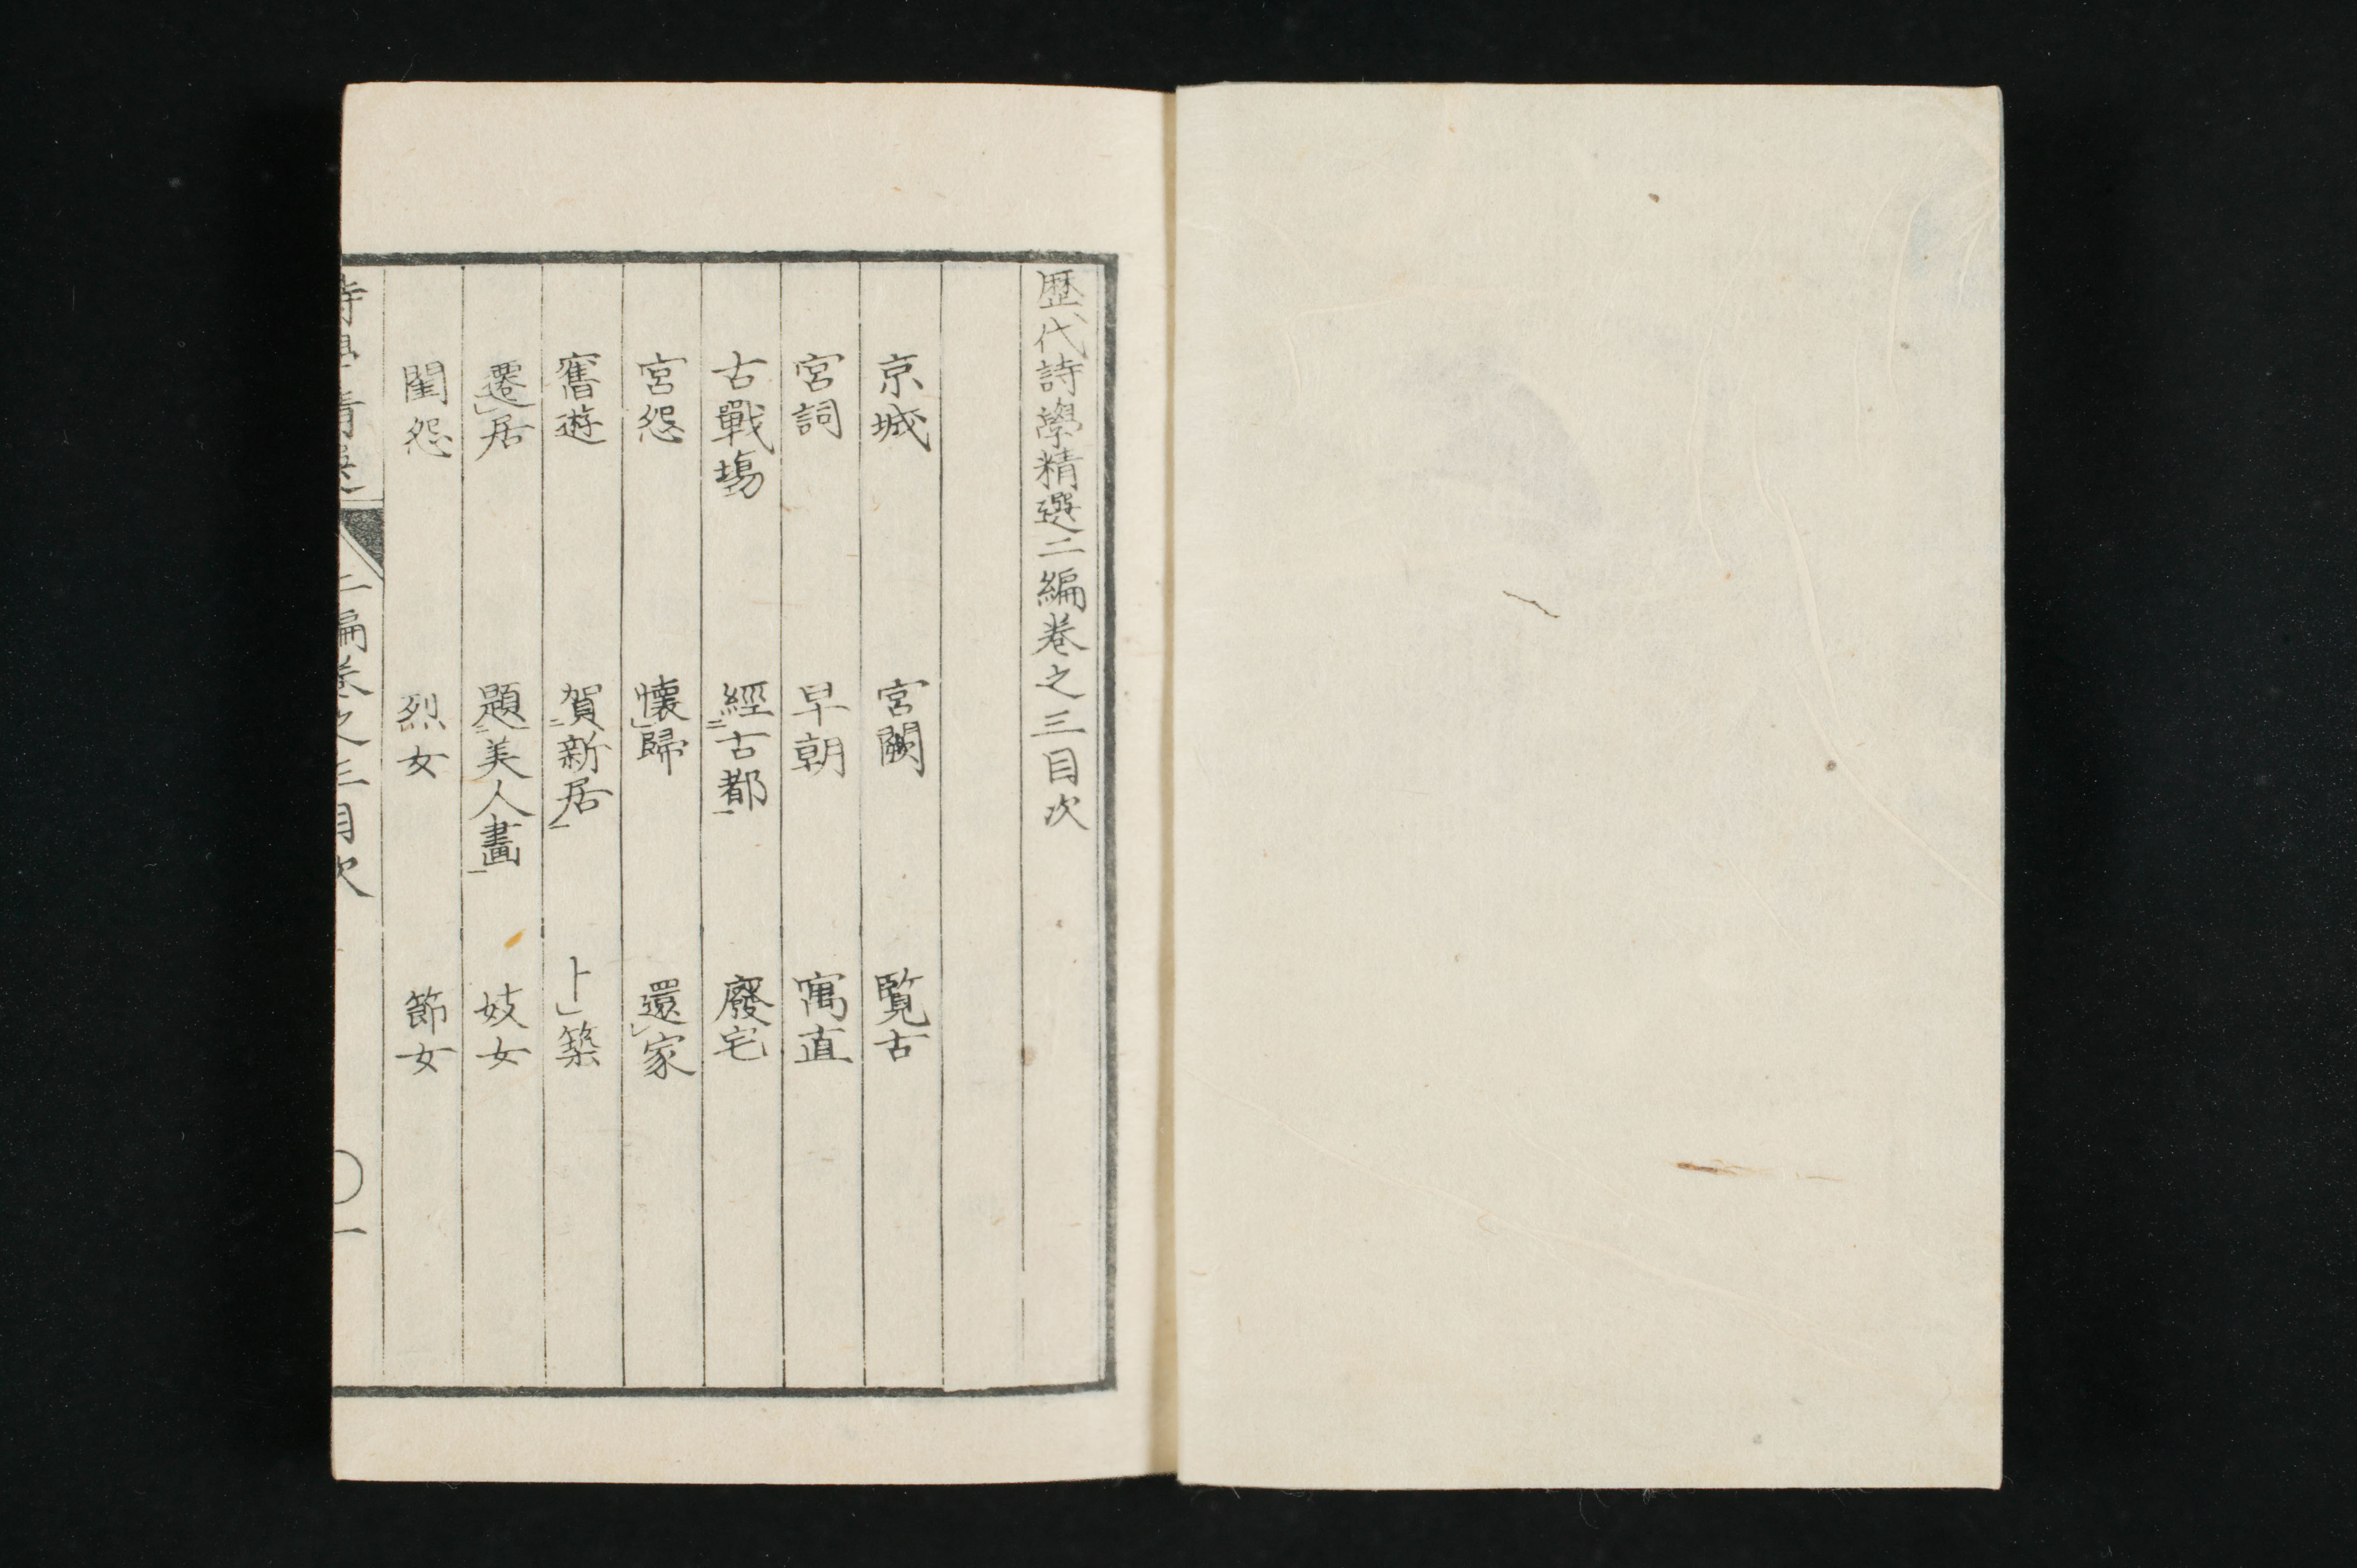 歷代詩學精選二編卷之三目次
京城 宮闕 覧古
宮詞 早朝 寓直
古戰塲 經古都 廢宅
宮怨 懷歸 還家
舊遊 賀新居 卜築
遷居 題美人畫 妓女
閨怨 烈女 節女
詩學精選 二編卷之三目次 〇一